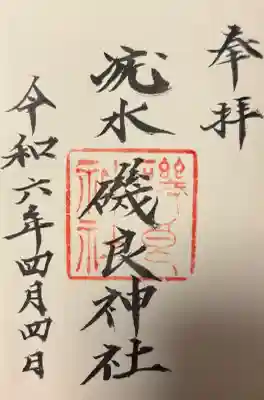 奉拝
疣水磯良神社
磯良神社
令和六年四月四日